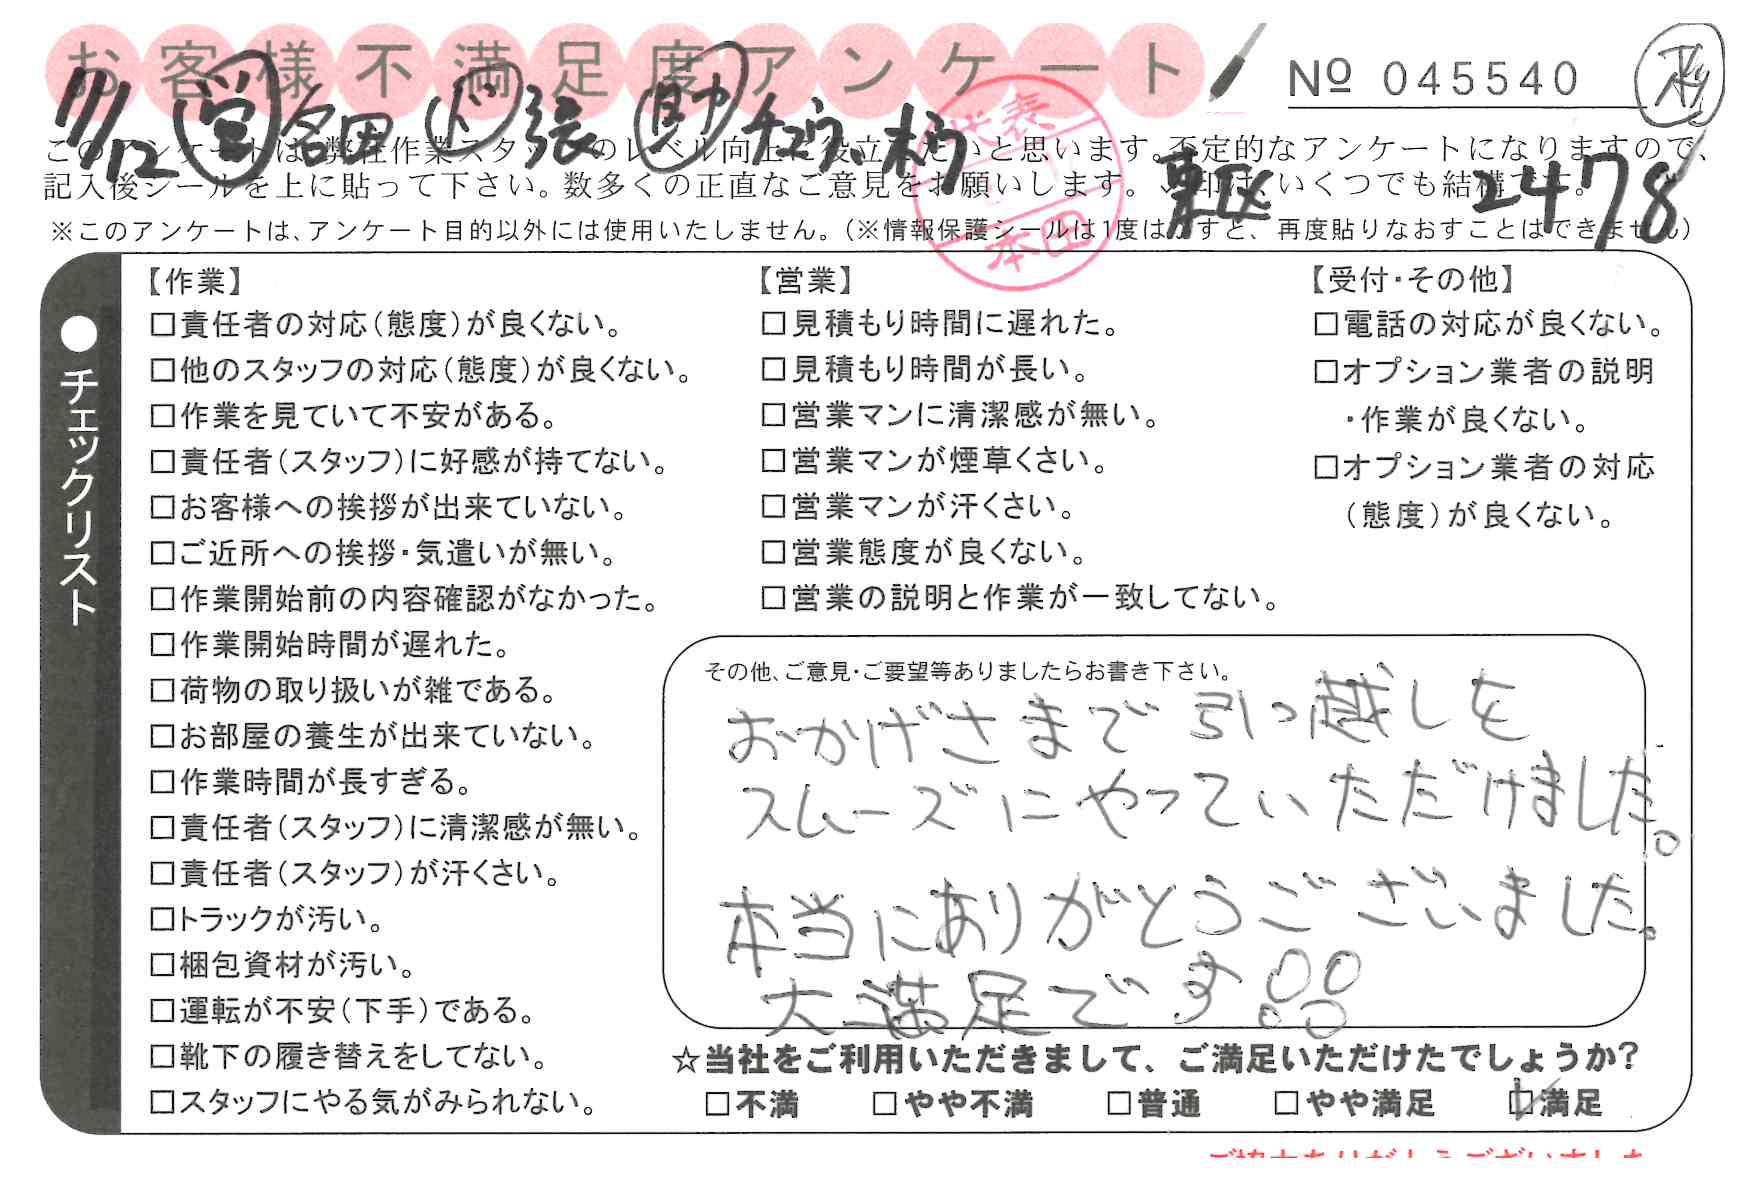 お客様不満足度アンケート
№ 045540
11/12 営 名田 ド 張 助
東区
2478
代表
本田
このアンケートは、弊社作業スタッフのレベル向上に役立てたいと思います。不定的なアンケートになりますので、
記入後シールを上に貼って下さい。数多くの正直なご意見をお願いします。✓印は、いくつでも結構です。
※このアンケートは、アンケート目的以外には使用いたしません。(※情報保護シールは1度はがすと、再度貼りなおすことはできません)
●チェックリスト
【作業】
□責任者の対応(態度)が良くない。
□他のスタッフの対応(態度)が良くない。
□作業を見ていて不安がある。
□責任者(スタッフ)に好感が持てない。
□お客様への挨拶が出来ていない。
□ご近所への挨拶・気遣いが無い。
□作業開始前の内容確認がなかった。
□作業開始時間が遅れた。
□荷物の取り扱いが雑である。
□お部屋の養生が出来ていない。
□作業時間が長すぎる。
□責任者(スタッフ)に清潔感が無い。
□責任者(スタッフ)が汗くさい。
□トラックが汚い。
□梱包資材が汚い。
□運転が不安(下手)である。
□靴下の履き替えをしてない。
□スタッフにやる気がみられない。
【営業】
□見積もり時間に遅れた。
□見積もり時間が長い。
□営業マンに清潔感が無い。
□営業マンが煙草くさい。
□営業マンが汗くさい。
□営業態度が良くない。
□営業の説明と作業が一致してない。
【受付・その他】
□電話の対応が良くない。
□オプション業者の説明
・作業が良くない。
□オプション業者の対応
(態度)が良くない。
その他、ご意見・ご要望等ありましたらお書き下さい。
おかげさまで引っ越しを
スムーズにやっていただけました。
本当にありがとうございました。
大満足です
☆当社をご利用いただきまして、ご満足いただけたでしょうか?
□不満 □やや不満 □普通 □やや満足 ☑満足
ご協力ありがとうございました